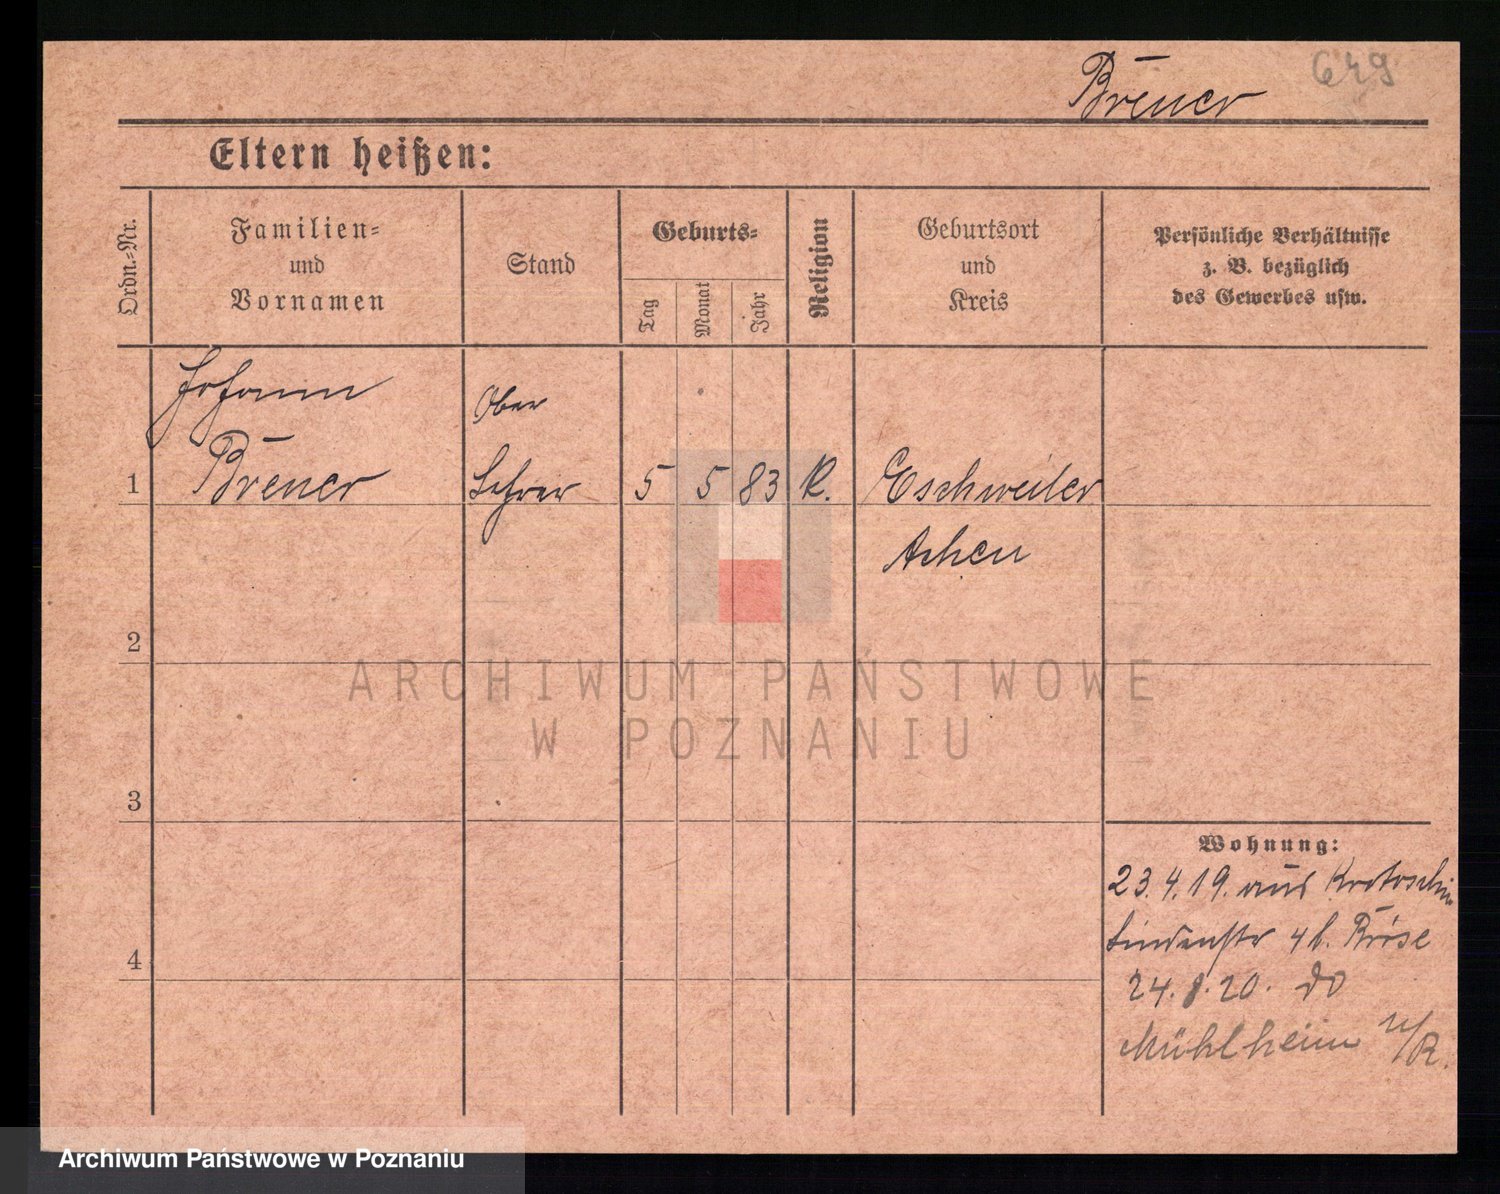 Breuer 649
Eltern heißen:
Ordn.-Nr.
Familien-
und
Vornamen
Stand
Geburts-
Tag
Monat
Jahr
Religion
Geburtsort
und
Kreis
Persönliche Verhältnisse
z. B. bezüglich
des Gewerbes usw.
Johann
Ober
1 Breuer Lehrer 5 5 83 K. Eschweiler
Achen
2
ARCHIWUM PAŃSTWOWE
W POZNANIU
3
Wohnung:
23.4.19. aus Krotoschin
Lindenstr 4 b. Röse
4
24.8.20. do
Mühlheim n/R.
Archiwum Państwowe w Poznaniu